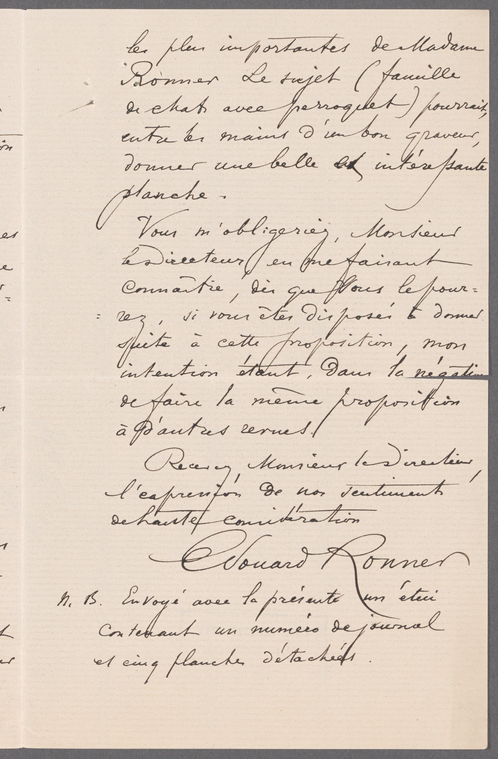 les plus importantes de Madame
Ronner Le sujet (famille
de chats avec perroquet) pourrait,
entre les mains d'un bon graveur,
donner une belle et intéressante
planche.
Vous m'obligeriez, Monsieur
le Directeur, en me faisant
connaître, dès que vous le pour=
=rez, si vous êtes disposés à donner
suite à cette proposition, mon
intention étant, dans la négative
de faire la même proposition
à d'autres revues.
Recevez, Monsieur le Directeur,
l'expression de nos sentiments
de haute considération
Edouard Ronner
N. B. Envoyé avec la présente un étui
contenant un numéro de journal
et cinq planches détachées.